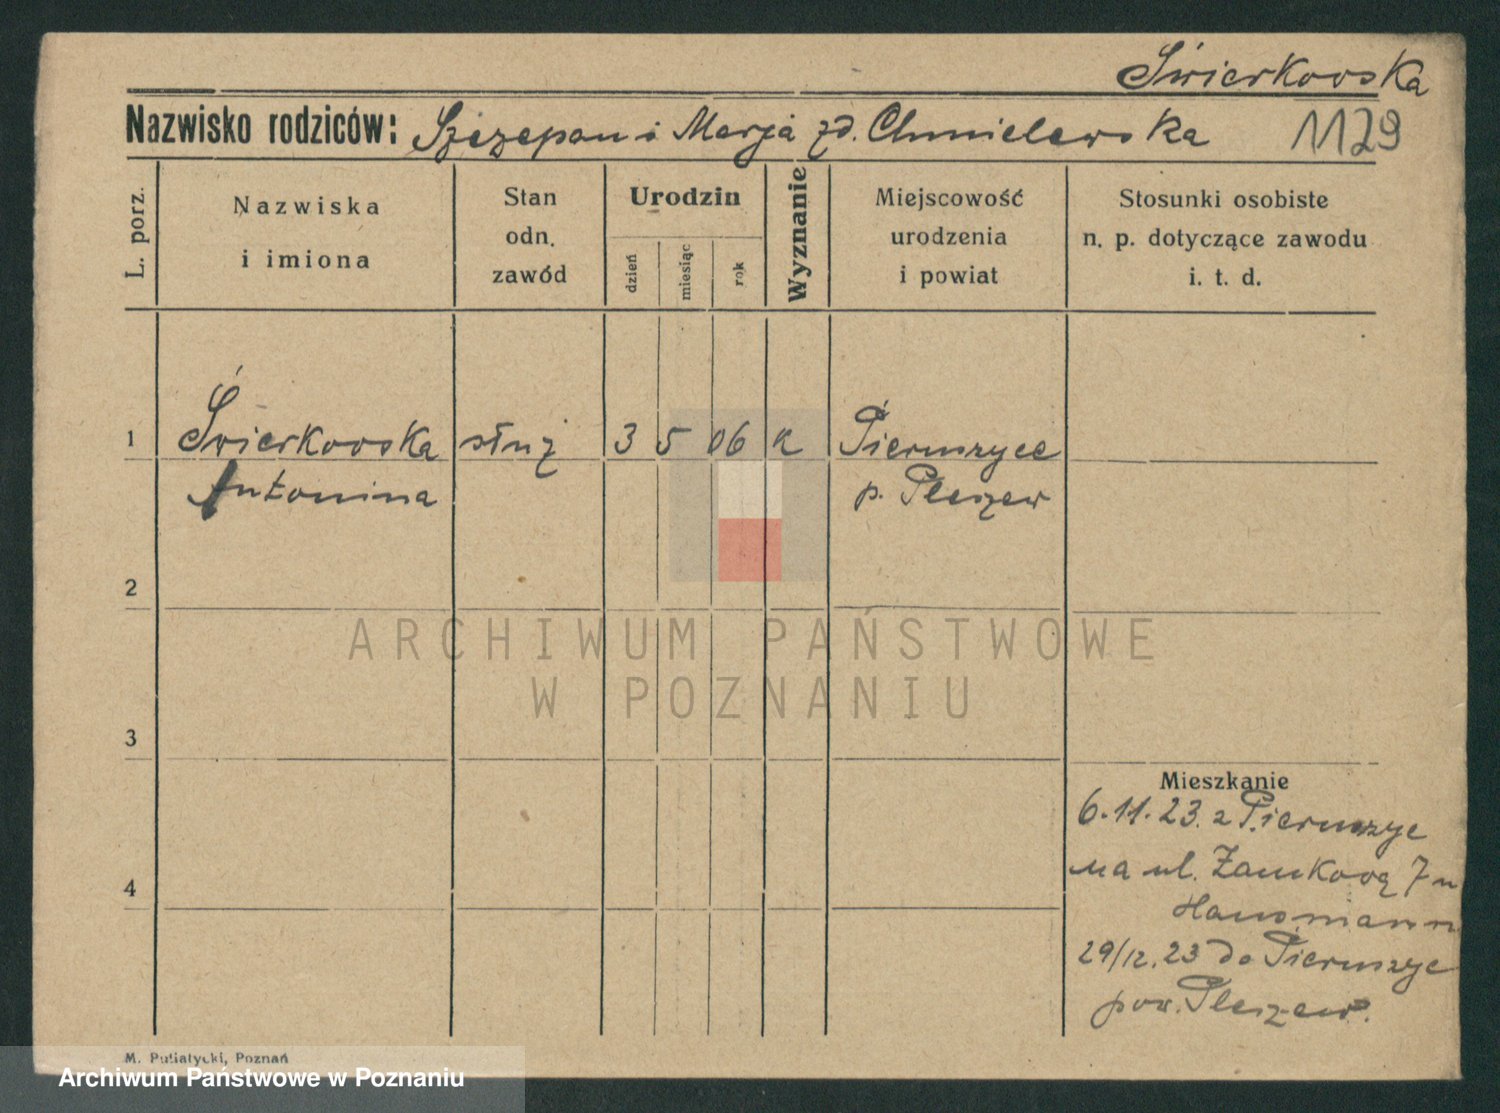 Świerkowska
Nazwisko rodziców: Szczepan i Marja zd. Chmielewska 1129
L. porz.
Nazwiska
i imiona
Stan
odn.
zawód
Urodzin
dzień
miesiąc
rok
Wyznanie
Miejscowość
urodzenia
i powiat
Stosunki osobiste
n. p. dotyczące zawodu
i. t. d.
1 Świerkowska służ 3 5 06 k Pieruszyce
Antonina p. Pleszew
2
ARCHIWUM PAŃSTWOWE
W POZNANIU
3
Mieszkanie
6.11.23. z Pieruszyc
na ul. Zamkową 7 u
4
Hausmann
29/12.23 do Pieruszyc
pow. Pleszew.
M. Putiatycki, Poznań
Archiwum Państwowe w Poznaniu